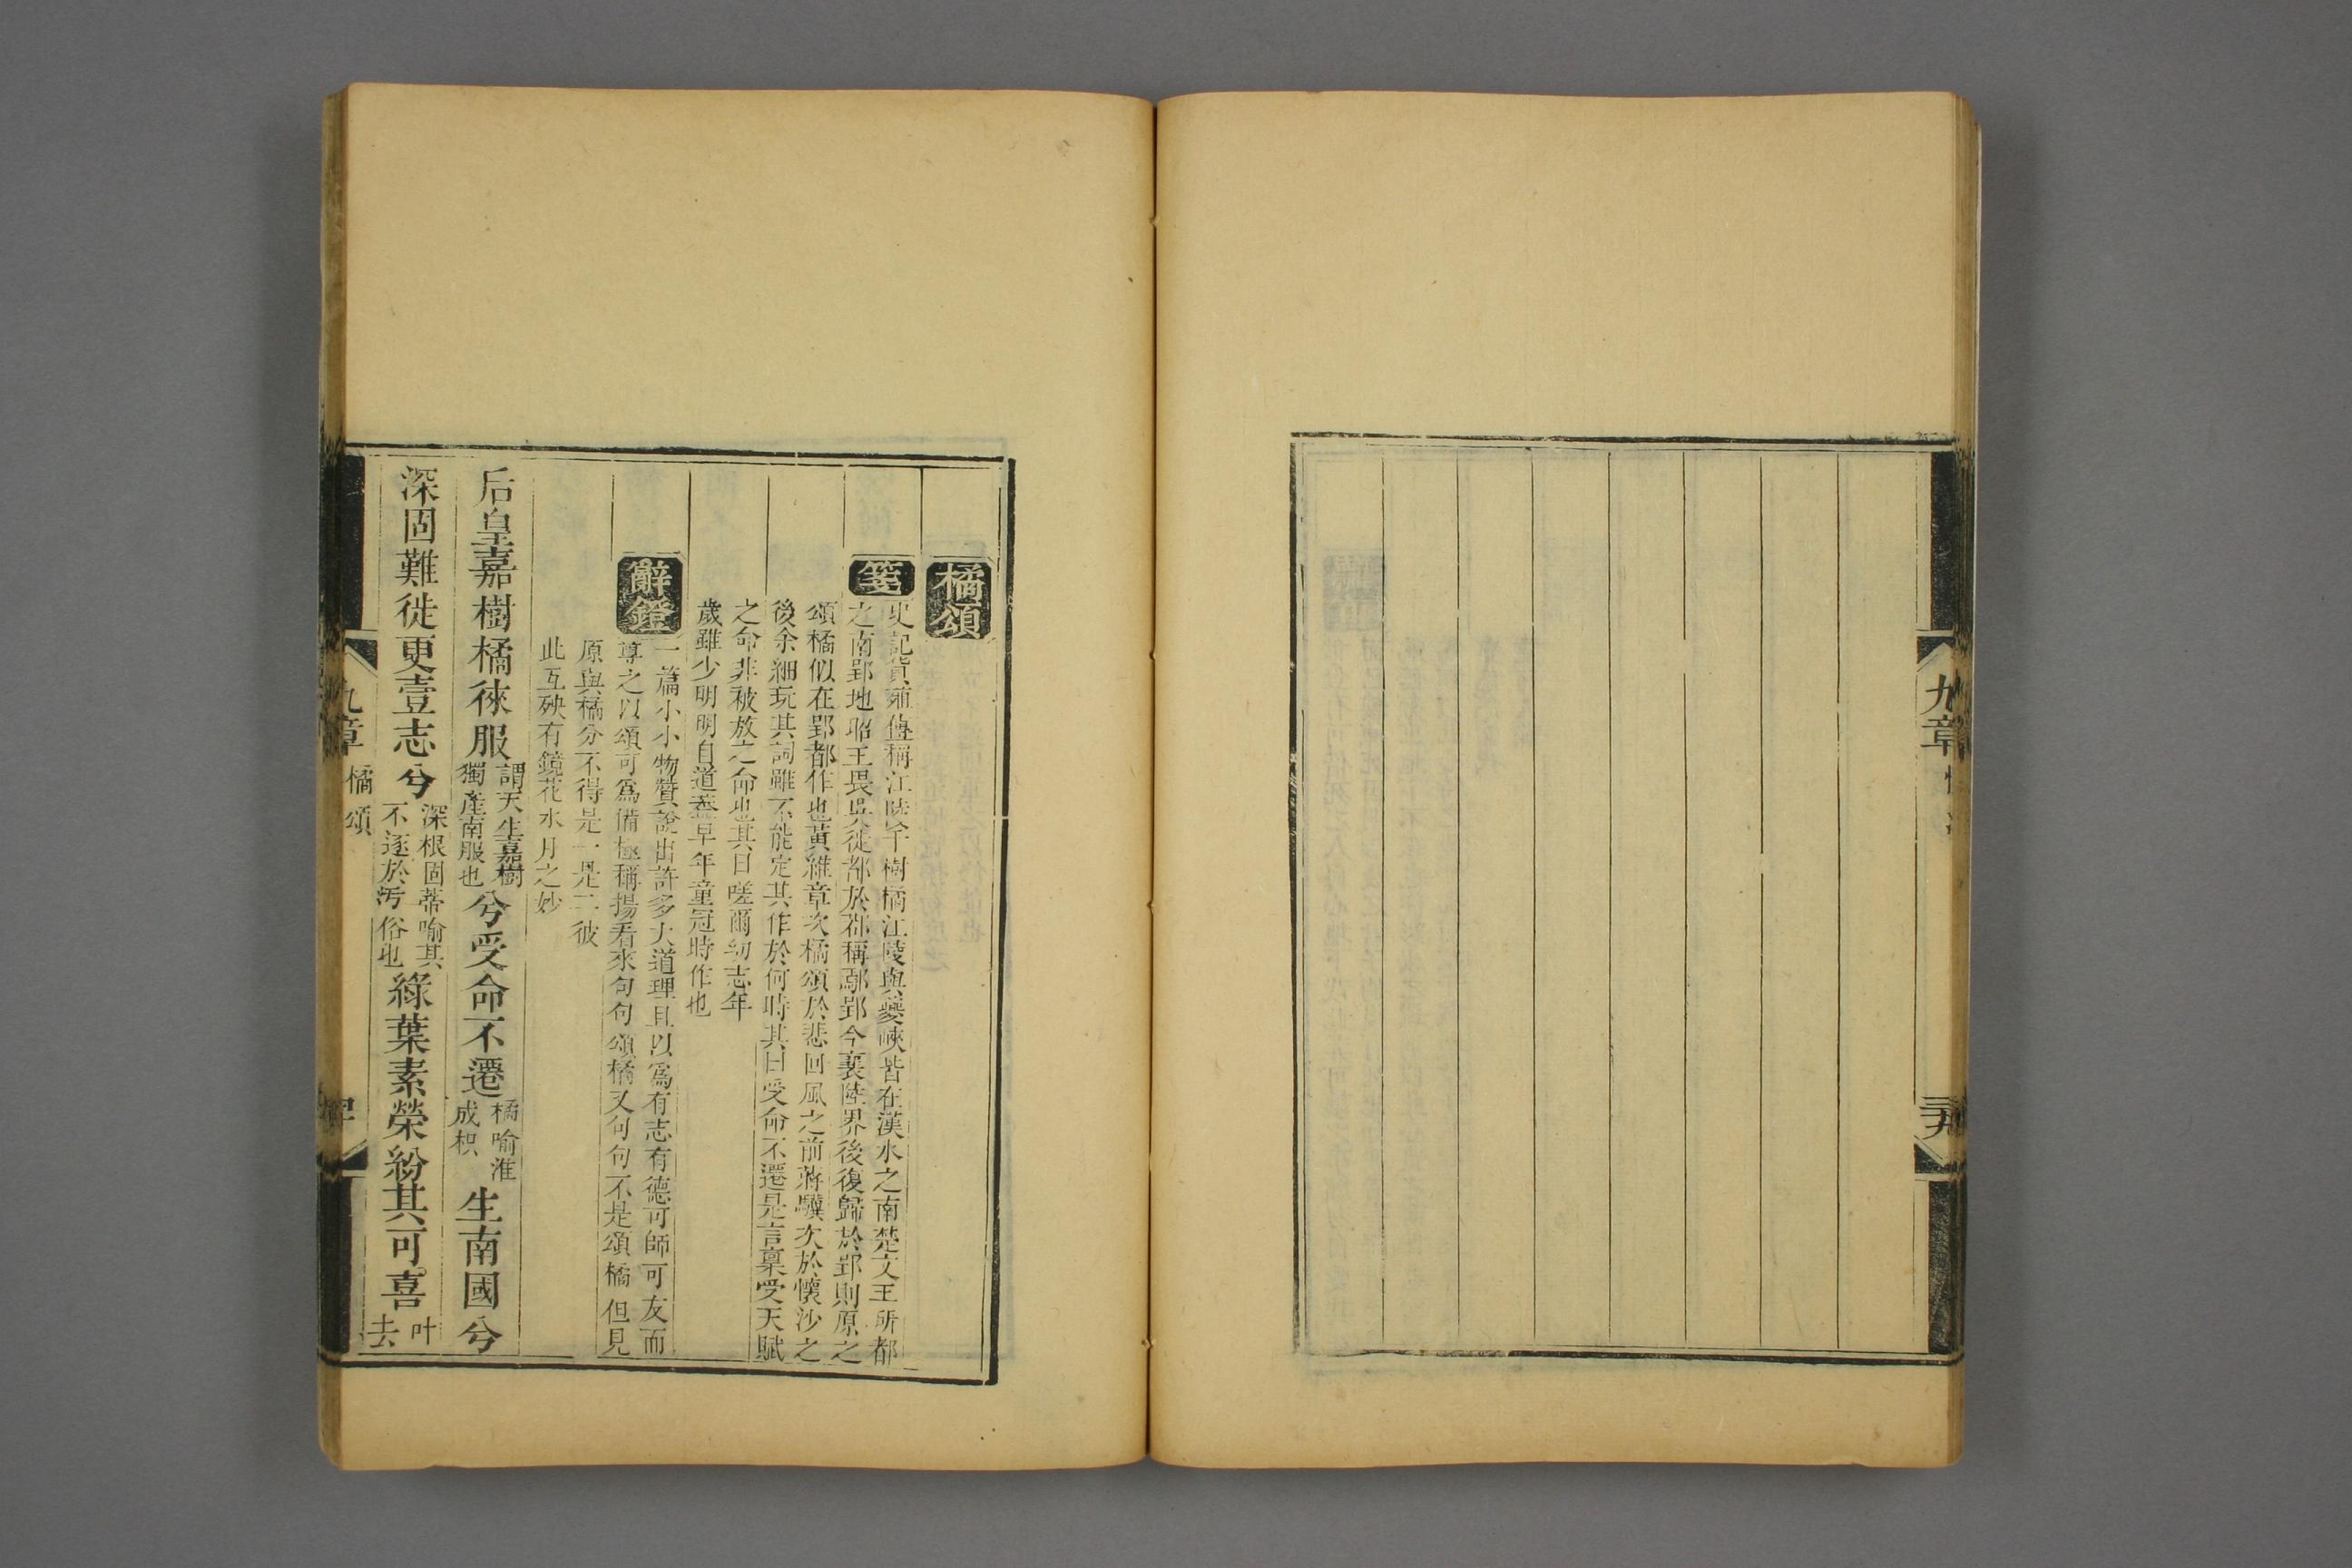 九章
三十九
橘頌
箋
史記貨殖傳稱江陵千樹橘江陵與夔峽皆在漢水之南楚文王所都
之南郢地昭王畏吳徙都於鄀稱鄢郢今襄陸界後復歸於郢則原之
頌橘似在郢都作也黃維章次橘頌於悲回風之前蔣驥次於懷沙之
後余細玩其詞雖不能定其作於何時其曰受命不遷是言稟受天賦
之命非被放之命也其曰嗟爾幼志年
歲雖少明明自道蓋早年童冠時作也
辭鐙
一篇小小物贊說出許多大道理且以為有志有德可師可友而
尊之以頌可爲備極稱揚看來句句頌橘又句句不是頌橘但見
原與橘分不得是一是二彼
此互映有鏡花水月之妙
后皇嘉樹橘徠服謂天生嘉樹獨產南服也兮受命不遷橘喻淮成枳生南國兮
深固難徙更壹志兮深根固蒂喻其不逐於汚俗也綠葉素榮紛其可喜叶去
九章
橘頌